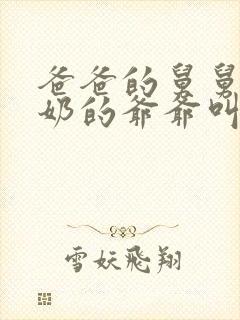 爸爸的舅舅
奶的爷爷叫
雪妖飛翔